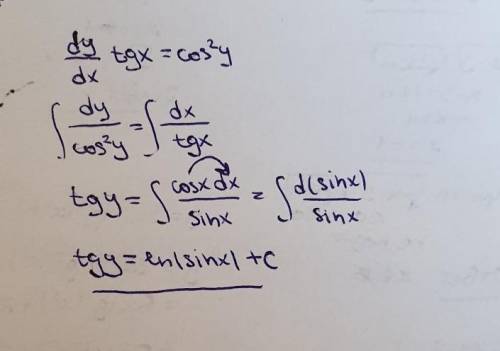 dy/dx tgx = cos²y
∫ dy/cos²y = ∫ dx/tgx
tgy = ∫ cosx dx/sinx = ∫ d(sinx)/sinx
tgy = ln|sinx| + C